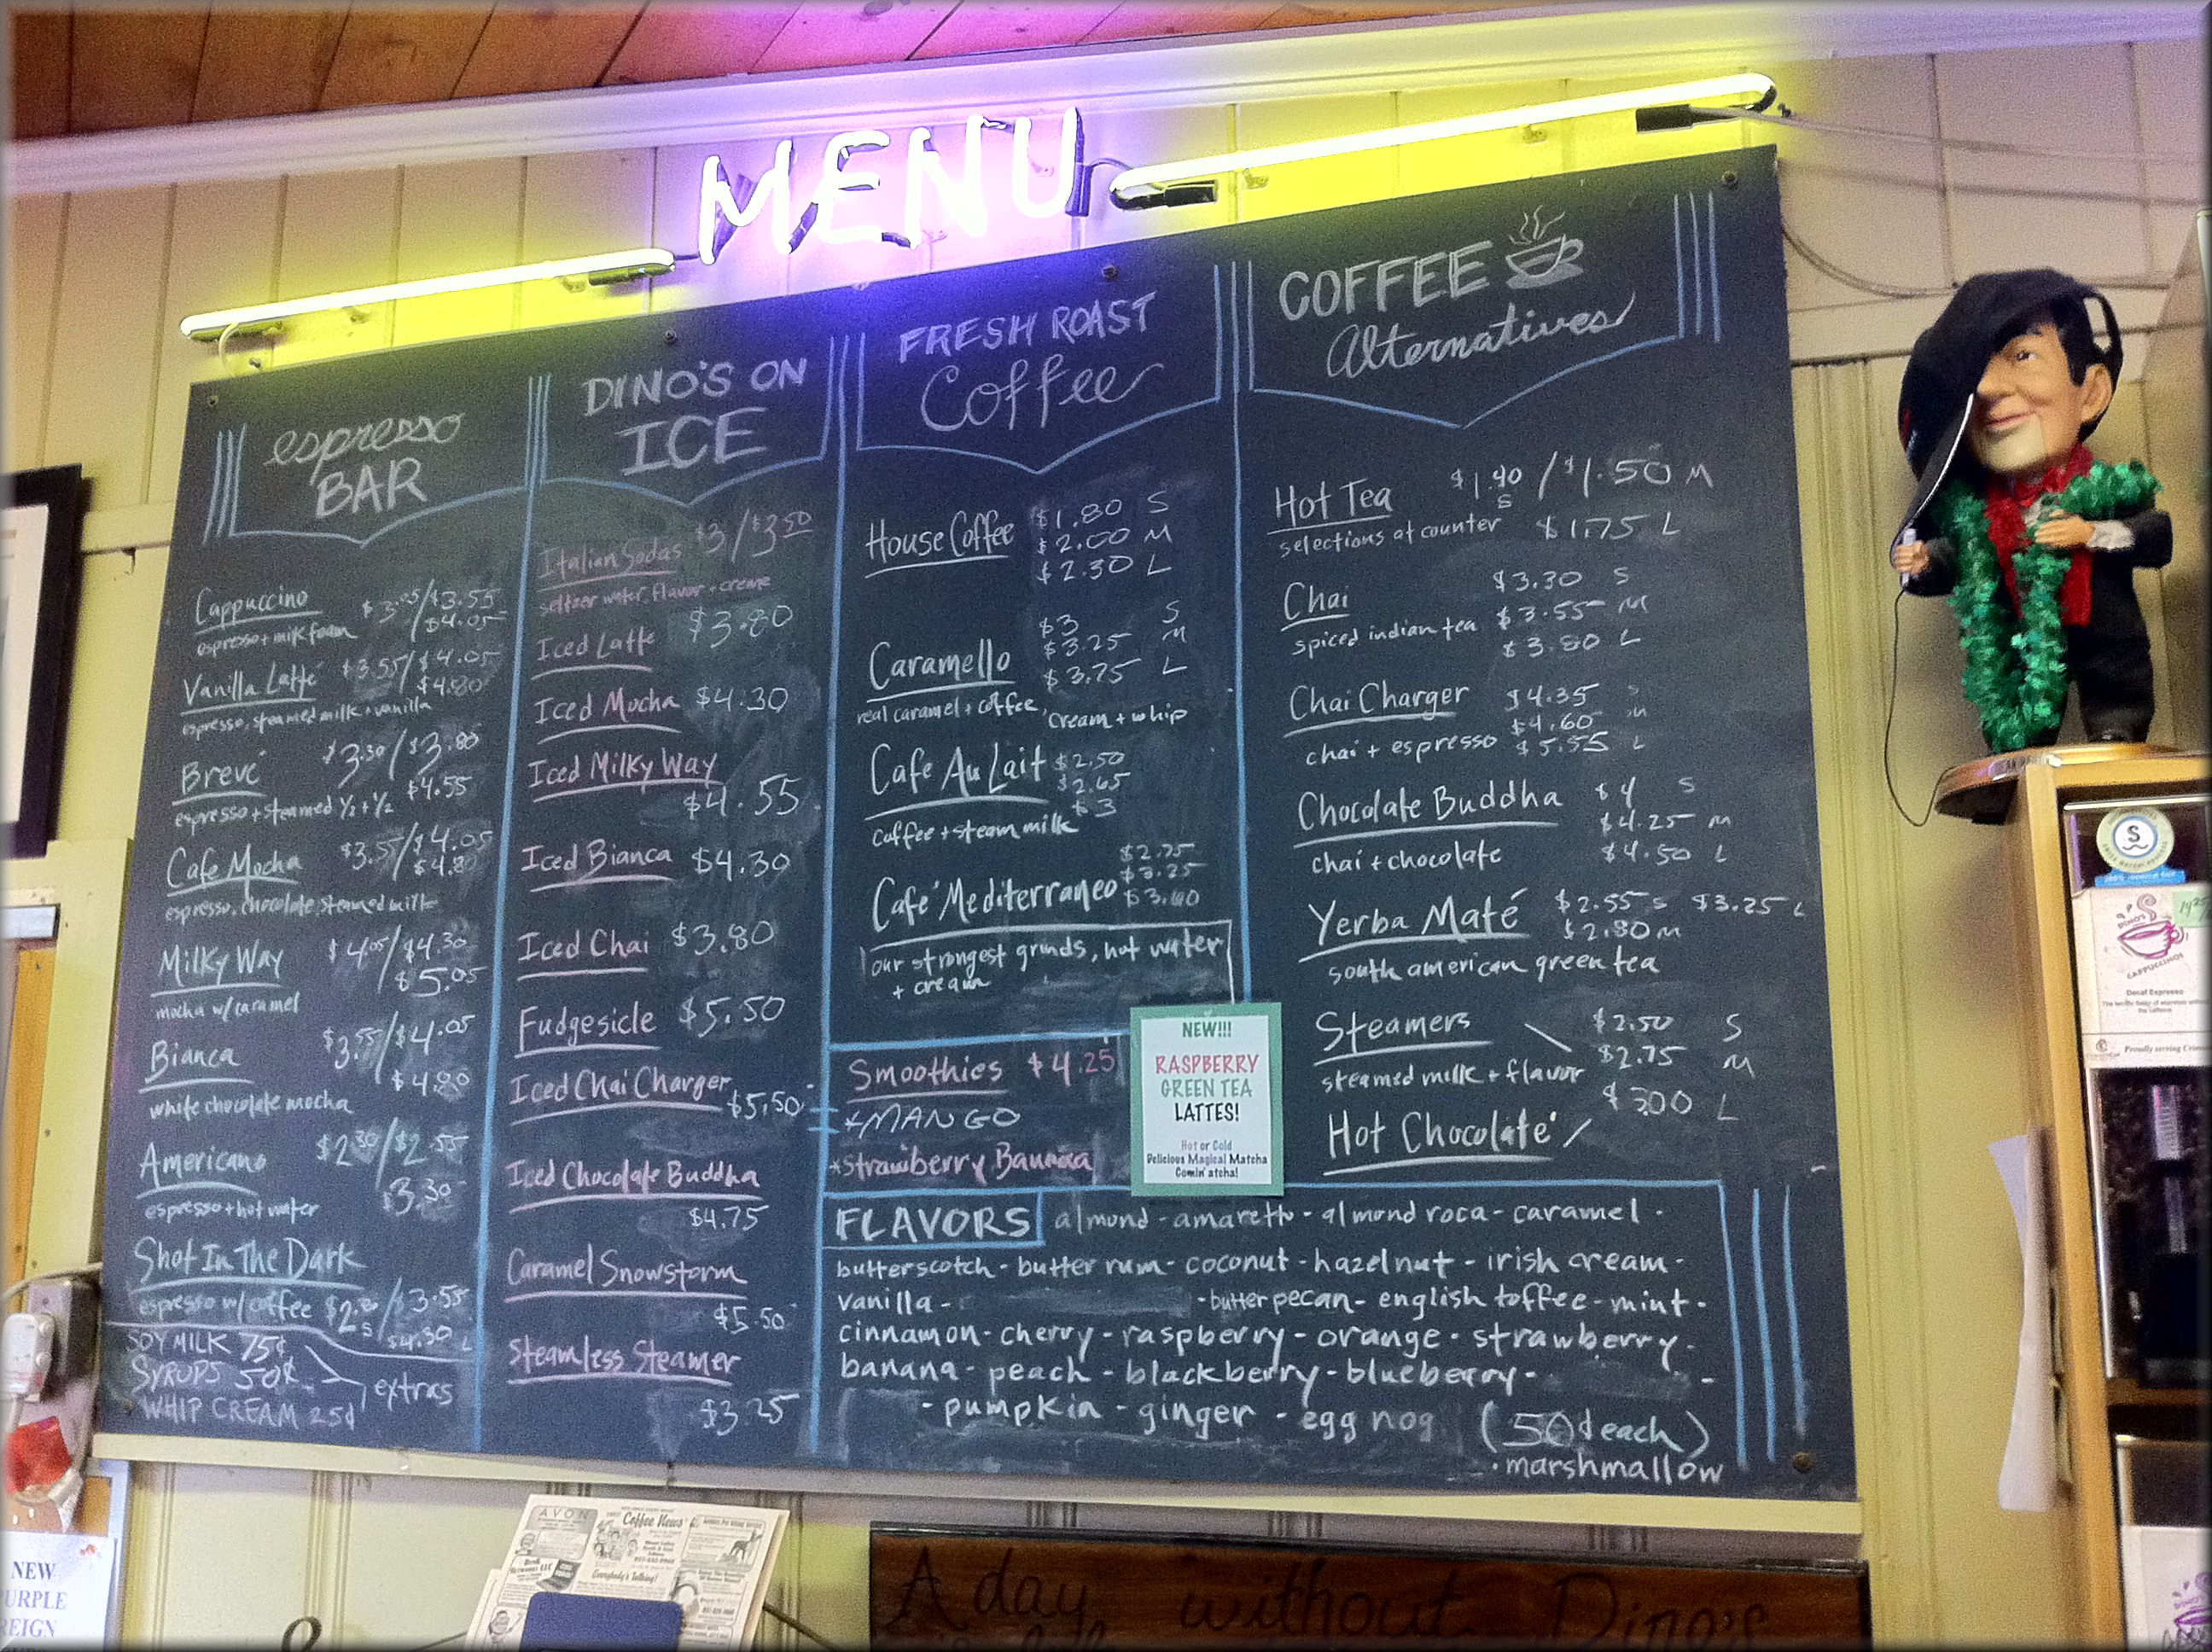 MENU
espresso
BAR
Cappuccino $3.05/$3.55
$4.05
espresso + milk foam
Vanilla Latté $3.55/$4.05
$4.80
espresso, steamed milk + vanilla
Brevé $3.30/$3.80
$4.55
espresso + steamed ½ + ½
Cafe Mocha $3.55/$4.05
$4.80
espresso, chocolate, steamed milk
Milky Way $4.05/$4.30
$5.05
mocha w/ caramel
Bianca $3.55/$4.05
$4.80
white chocolate mocha
Americano $2.30/$2.55
$3.30
espresso + hot water
Shot In The Dark
espresso w/ coffee S /$3.55
$4.30 L
SOY MILK 75¢
SYRUPS 50¢
extras
WHIP CREAM 25¢
DINO'S ON
ICE
Italian Sodas $3/$3.50
seltzer water, flavor + creme
Iced Latte $3.80
Iced Mocha $4.30
Iced Milky Way
$4.55
Iced Bianca $4.30
Iced Chai $3.80
Fudgesicle $5.50
Iced Chai Charger
$5.50
Iced Chocolate Buddha
$4.75
Caramel Snowstorm
$5.50
Steamless Steamer
$3.25
FRESH ROAST
Coffee
House Coffee $1.80 S
$2.00 M
$2.30 L
Caramello $3 S
$3.25 M
$3.75 L
real caramel + coffee, cream + whip
Cafe Au Lait $2.50
$2.65
$3
coffee + steam milk
Café Mediterraneo $2.75
$3.25
our strongest grinds, hot water
+ cream
Smoothies $4.25
*MANGO
*Strawberry Banana
NEW!!!
RASPBERRY
GREEN TEA
LATTES!
Hot or Cold
Delicious Magical Matcha
Comin' atcha!
COFFEE
Alternatives
Hot Tea $1.40 S /$1.50 M
selections at counter $1.75 L
Chai $3.30 S
$3.55 M
spiced indian tea
$3.80 L
Chai Charger $4.35 S
$4.60 M
chai + espresso $5.55 L
Chocolate Buddha $4 S
$4.25 M
chai + chocolate $4.50 L
Yerba Maté $2.55 S $3.25 L
$2.80 M
south american green tea
Steamers $2.50 S
$2.75 M
steamed milk + flavor
$3.00 L
Hot Chocolate
FLAVORS almond - amaretto - almond roca - caramel -
butterscotch - butter rum - coconut - hazelnut - irish cream -
vanilla - - butter pecan - english toffee - mint -
cinnamon - cherry - raspberry - orange - strawberry -
banana - peach - blackberry - blueberry - -
- pumpkin - ginger - egg nog (50¢ each)
• marshmallow
AVON
Coffee News
Everybody's Talking!
A day without Dino's
NEW
PURPLE
REIGN
DINO'S
CAPPUCCINOS
Decaf Espresso